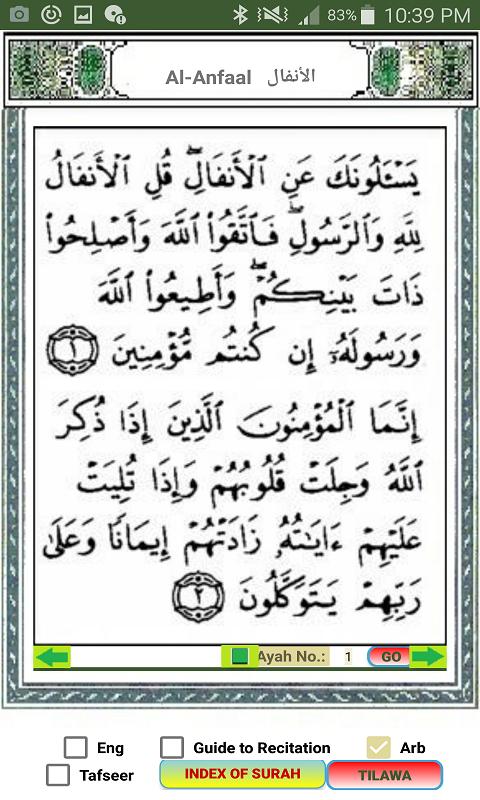 83% 10:39 PM
Al-Anfaal الأنفال
يَسْـَٔلُونَكَ عَنِ ٱلْأَنفَالِ ۖ قُلِ ٱلْأَنفَالُ
لِلَّهِ وَٱلرَّسُولِ ۖ فَٱتَّقُوا۟ ٱللَّهَ وَأَصْلِحُوا۟
ذَاتَ بَيْنِكُمْ ۖ وَأَطِيعُوا۟ ٱللَّهَ
وَرَسُولَهُۥٓ إِن كُنتُم مُّؤْمِنِينَ ١
إِنَّمَا ٱلْمُؤْمِنُونَ ٱلَّذِينَ إِذَا ذُكِرَ
ٱللَّهُ وَجِلَتْ قُلُوبُهُمْ وَإِذَا تُلِيَتْ
عَلَيْهِمْ ءَايَـٰتُهُۥ زَادَتْهُمْ إِيمَـٰنًا وَعَلَىٰ
رَبِّهِمْ يَتَوَكَّلُونَ ٢
Ayah No.: 1 GO
Eng Guide to Recitation Arb
Tafseer INDEX OF SURAH TILAWA